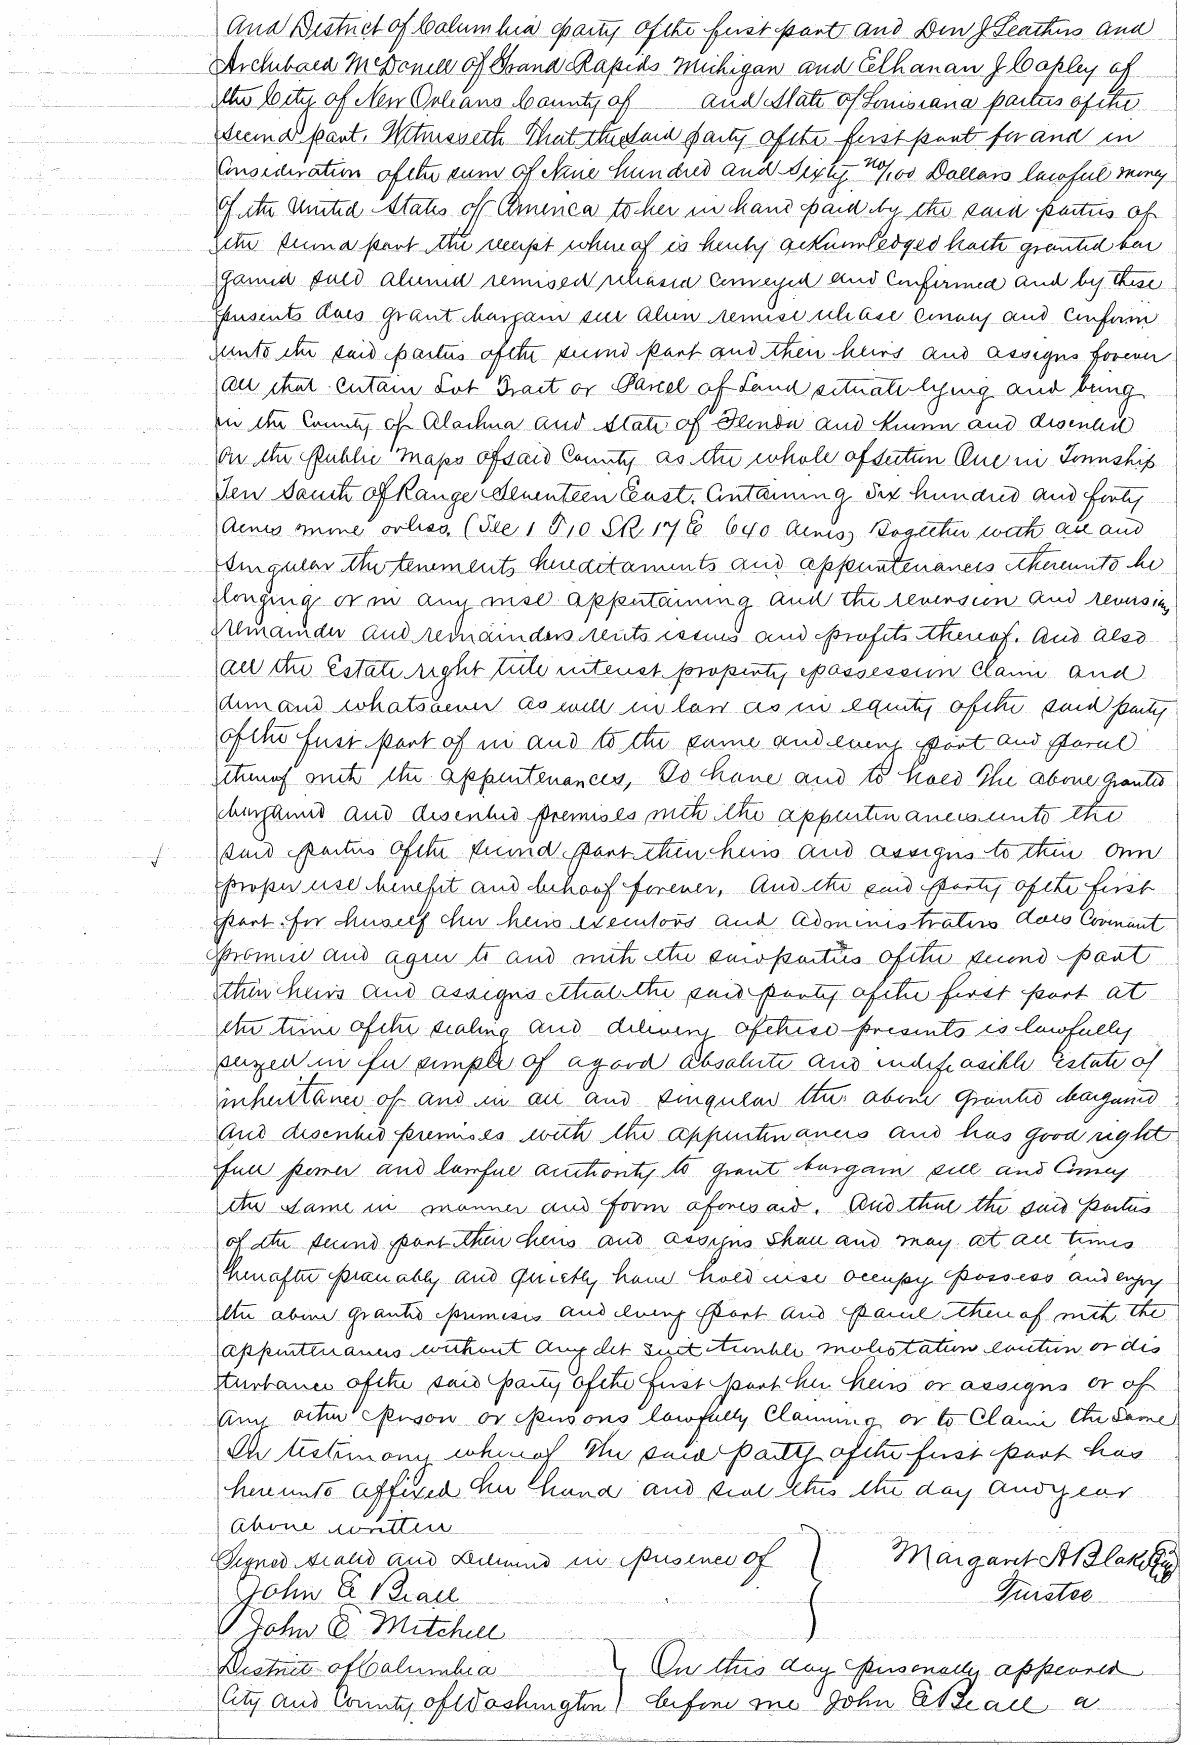 and District of Columbia party of the first part and Don J Leathers and
Archibald McDonell of Grand Rapids Michigan and Elhanan J Copley of
the City of New Orleans County of and State of Louisiana parties of the
second part. Witnesseth That the said party of the first part for and in
Consideration of the sum of Nine hundred and Sixty no/100 Dollars lawful money
of the United States of America to her in hand paid by the said parties of
the second part the receipt whereof is hereby acknowledged hath granted bar
gained sold aliened remised released conveyed and confirmed and by these
presents does grant bargain sell alien remise release convey and confirm
unto the said parties of the second part and their heirs and assigns forever
all that certain Lot Tract or Parcel of Land situate lying and being
in the County of Alachua and State of Florida and known and described
on the Public Maps of said County as the whole of section One in Township
Ten South of Range Seventeen East. Containing Six hundred and forty
Acres more or less. (Sec 1 T 10 S R 17 E 640 Acres) Together with all and
singular the tenements hereditaments and appurtenances thereunto be
longing or in any wise appertaining and the reversion and reversions
remainder and remainders rents issues and profits thereof. And also
all the Estate right title interest property possession claim and
demand whatsoever as well in law as in equity of the said party
of the first part of in and to the same and every part and parcel
thereof with the appurtenances, To have and to hold The above granted
bargained and described premises with the appurtenances unto the
said parties of the second part their heirs and assigns to their own
proper use benefit and behoof forever. And the said party of the first
part for herself her heirs executors and administrators does Covenant
promise and agree to and with the said parties of the second part
their heirs and assigns that the said party of the first part at
the time of the sealing and delivery of these presents is lawfully
seized in fee simple of a good absolute and indefeasible Estate of
inheritance of and in all and singular the above granted bargained
and described premises with the appurtenances and has good right
full power and lawful authority to grant bargain sell and Convey
the same in manner and form aforesaid. And that the said parties
of the second part their heirs and assigns shall and may at all times
hereafter peaceably and quietly have hold use occupy possess and enjoy
the above granted premises and every part and parcel thereof with the
appurtenances without any let suit trouble molestation eviction or dis
turbance of the said party of the first part her heirs or assigns or of
any other person or persons lawfully Claiming or to Claim the same
In testimony whereof The said party of the first part has
hereunto affixed her hand and seal this the day and year
above written
Signed sealed and delivered in presence of } Margaret A Blake
John E Beall Trustee
John E Mitchell
District of Columbia } On this day personally appeared
City and County of Washington } before me John E Beall a